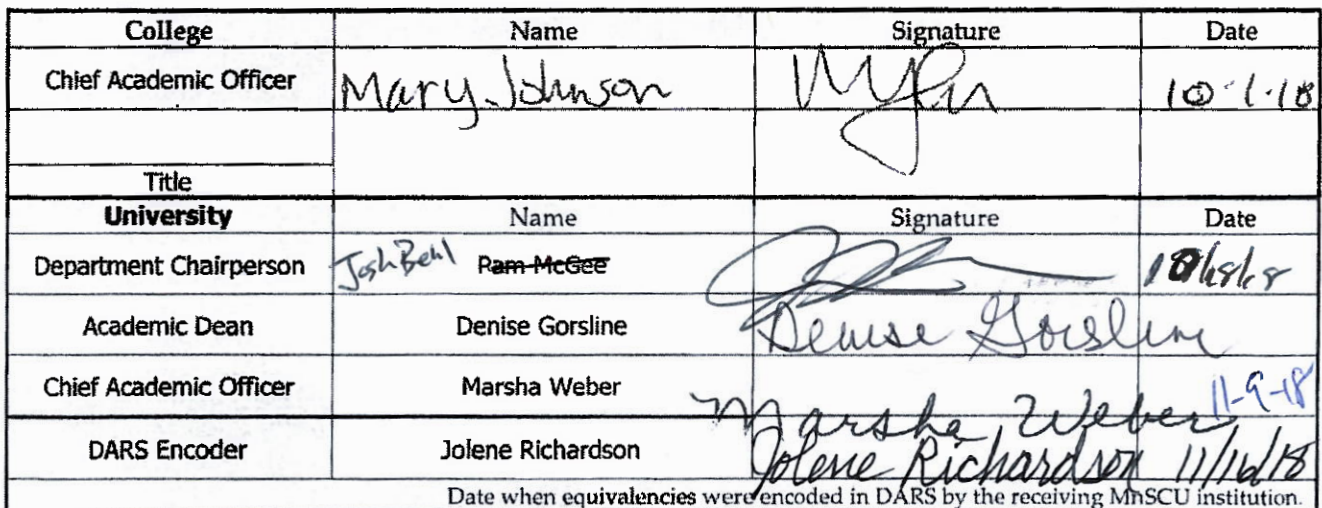 College Name Signature Date
Chief Academic Officer Mary Johnson 10-1-18
Title
University Name Signature Date
Department Chairperson Josh Behl Pam McGee
Academic Dean Denise Gorsline Denise Gorsline
Chief Academic Officer Marsha Weber Marsha Weber 11-9-18
DARS Encoder Jolene Richardson Jolene Richardson 11/16/18
Date when equivalencies were encoded in DARS by the receiving MnSCU institution.